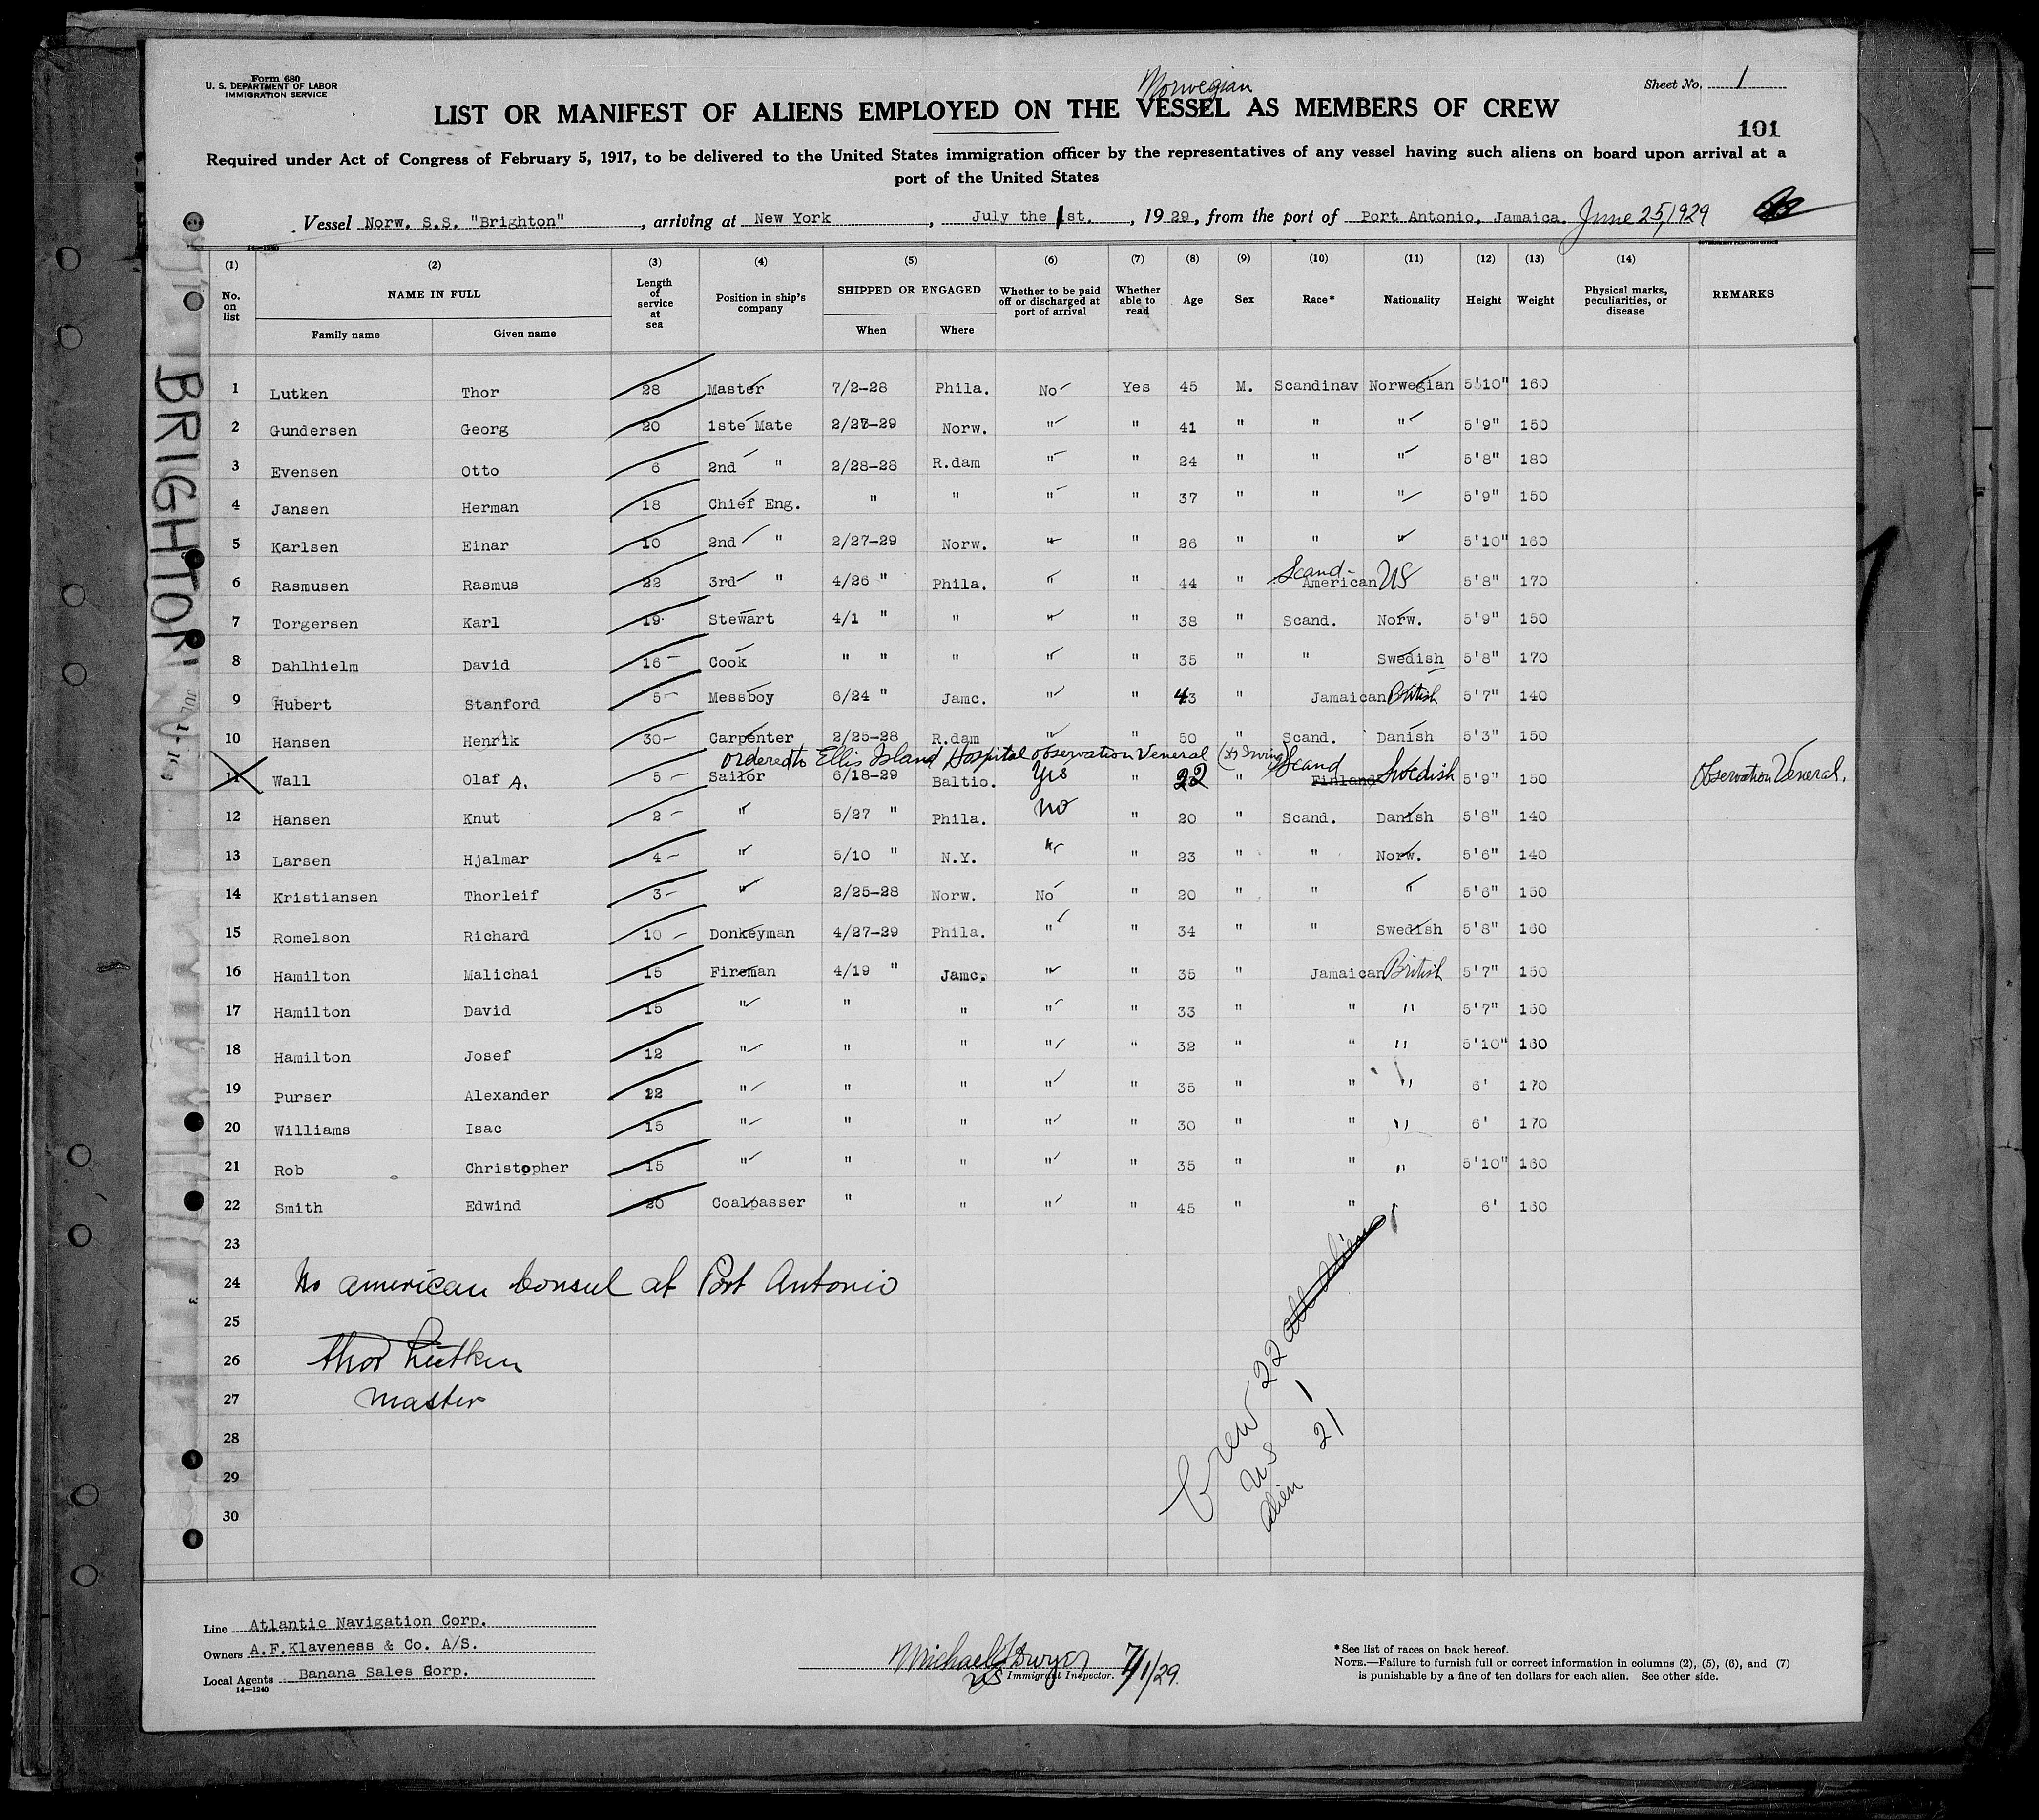 Form 680
U. S. DEPARTMENT OF LABOR
IMMIGRATION SERVICE
Sheet No. 1
Norwegian
LIST OR MANIFEST OF ALIENS EMPLOYED ON THE VESSEL AS MEMBERS OF CREW
101
Required under Act of Congress of February 5, 1917, to be delivered to the United States immigration officer by the representatives of any vessel having such aliens on board upon arrival at a
port of the United States
Vessel Norw. S.S. "Brighton", arriving at New York, July the 1st., 1929, from the port of Port Antonio, Jamaica. June 25, 1929
14—1240 GOVERNMENT PRINTING OFFICE
(1) (2) (3) (4) (5) (6) (7) (8) (9) (10) (11) (12) (13) (14)
No. on list NAME IN FULL Length of service at sea Position in ship's company SHIPPED OR ENGAGED Whether to be paid off or discharged at port of arrival Whether able to read Age Sex Race* Nationality Height Weight Physical marks, peculiarities, or disease REMARKS
Family name Given name When Where
BRIGHTON
1 Lutken Thor 28 Master 7/2-28 Phila. No Yes 45 M. Scandinav Norwegian 5'10" 160
2 Gundersen Georg 20 1ste Mate 2/27-29 Norw. " " 41 " " " 5'9" 150
3 Evensen Otto 6 2nd " 2/28-28 R.dam " " 24 " " " 5'8" 180
4 Jansen Herman 18 Chief Eng. " " " " 37 " " " 5'9" 150
5 Karlsen Einar 10 2nd " 2/27-29 Norw. " " 26 " " " 5'10" 160
6 Rasmusen Rasmus 22 3rd " 4/26 " Phila. " " 44 " Scand- American US 5'8" 170
7 Torgersen Karl 19 Stewart 4/1 " " " " 38 " Scand. Norw. 5'9" 150
8 Dahlhielm David 16 Cook " " " " " 35 " " Swedish 5'8" 170
9 Hubert Stanford 5 Messboy 6/24 " Jamc. " " 43 " Jamaican British 5'7" 140
10 Hansen Henrik 30 Carpenter 2/25-28 R.dam " " 50 " Scand. Danish 5'3" 150
ordered to Ellis Island Hospital observation Veneral
11 Wall Olaf A. 5 Sailor 6/18-29 Baltio. Yes " 22 " Scand Finland Swedish 5'9" 150 Observation Veneral.
12 Hansen Knut 2 " 5/27 " Phila. no " 20 " Scand. Danish 5'8" 140
13 Larsen Hjalmar 4 " 5/10 " N.Y. " " 23 " " Norw. 5'6" 140
14 Kristiansen Thorleif 3 " 2/25-28 Norw. No " 20 " " " 5'6" 150
15 Romelson Richard 10 Donkeyman 4/27-29 Phila. " " 34 " " Swedish 5'8" 160
16 Hamilton Malichai 15 Fireman 4/19 " Jamc. " " 35 " Jamaican British 5'7" 150
17 Hamilton David 15 " " " " " 33 " " " 5'7" 150
18 Hamilton Josef 12 " " " " " 32 " " " 5'10" 160
19 Purser Alexander 22 " " " " " 35 " " " 6' 170
20 Williams Isac 15 " " " " " 30 " " " 6' 170
21 Rob Christopher 15 " " " " " 35 " " " 5'10" 160
22 Smith Edwind 20 Coalpasser " " " " 45 " " 6' 160
23
24 No american Consul at Port Antonio
25
26 Thor Lütken
27 Master
28
29
30
Crew 22 all aliens
US 1
alien 21
Line Atlantic Navigation Corp.
Owners A.F.Klaveness & Co. A/S.
Local Agents Banana Sales Corp.
14—1240
Michael J Dwyer
US Immigrant Inspector. 7/1/29.
*See list of races on back hereof.
NOTE.—Failure to furnish full or correct information in columns (2), (5), (6), and (7)
is punishable by a fine of ten dollars for each alien. See other side.